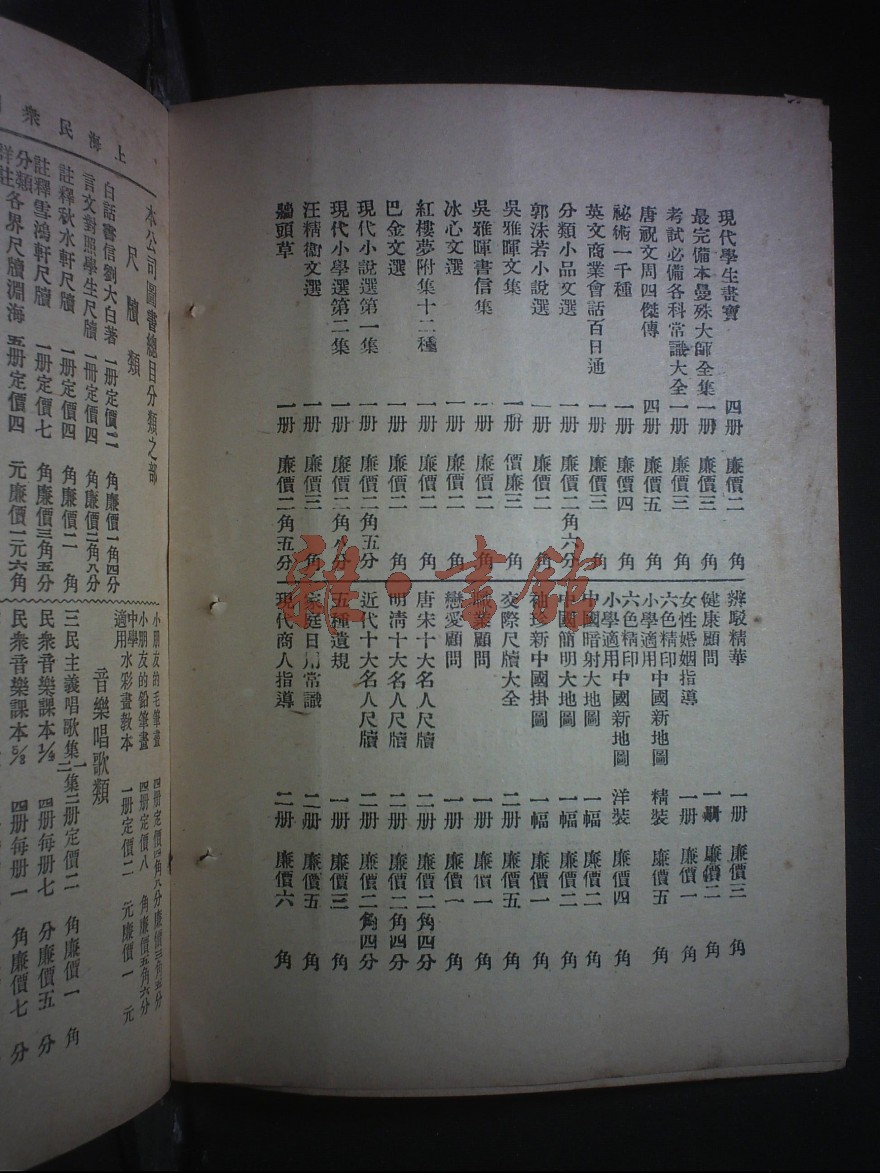 現代學生畫寶 四册 廉價二角
最完備本曼殊大師全集 一册 廉價三角
考試必備各科常識大全 一册 廉價三角
唐祝文周四傑傳 四册 廉價五角
祕術一千種 一册 廉價四角
英文商業會話百日通 一册 廉價三角
分類小品文選 一册 廉價二角六分
郭沫若小說選 一册 廉價二角
吳雅暉文集 一册 價廉三角
吳雅暉書信集 一册 廉價二角
冰心文選 一册 廉價二角
紅樓夢附集十二種 一册 廉價二角
巴金文選 一册 廉價二角
現代小說選第一集 一册 廉價二角五分
現代小學選第二集 一册 廉價二角八分
汪精衞文選 一册 廉價三角
牆頭草 一册 廉價二角五分
辨駁精華 一册 廉價三角
健康顧問 一册 廉價二角
女性婚姻指導 一册 廉價一角
六色精印小學適用中國新地圖 精裝 廉價五角
六色精印小學適用中國新地圖 洋裝 廉價四角
中國暗射大地圖 一幅 廉價二角
中國簡明大地圖 一幅 廉價二角
袖珍新中國掛圖 一幅 廉價一角
交際尺牘大全 二册 廉價五角
職業顧問 一册 廉價一角
戀愛顧問 一册 廉價一角
唐宋十大名人尺牘 二册 廉價二角四分
明清十大名人尺牘 二册 廉價二角四分
近代十大名人尺牘 二册 廉價二角四分
五種遺規 一册 廉價三角
家庭日用常識 二册 廉價五角
現代商人指導 二册 廉價六角
上海民衆
本公司圖書總目分類之部
尺牘類
白話書信劉大白著 一册定價二角廉價一角四分
言文對照學生尺牘 一册定價四角廉價二角八分
註釋秋水軒尺牘 一册定價四角廉價二角
註釋雪鴻軒尺牘 一册定價七角廉價三角五分
分類詳註各界尺牘淵海 五册定價四元廉價一元六角
小朋友的毛筆畫
小朋友的鉛筆畫 四册定價八角廉價五角六分
中學適用水彩畫教本 一册定價二元廉價一元
音樂唱歌類
三民主義唱歌集一二集二册定價二角廉價一角
民衆音樂課本 四册每册七分廉價五分
民衆音樂課本 四册每册一角廉價七分
雜·書館